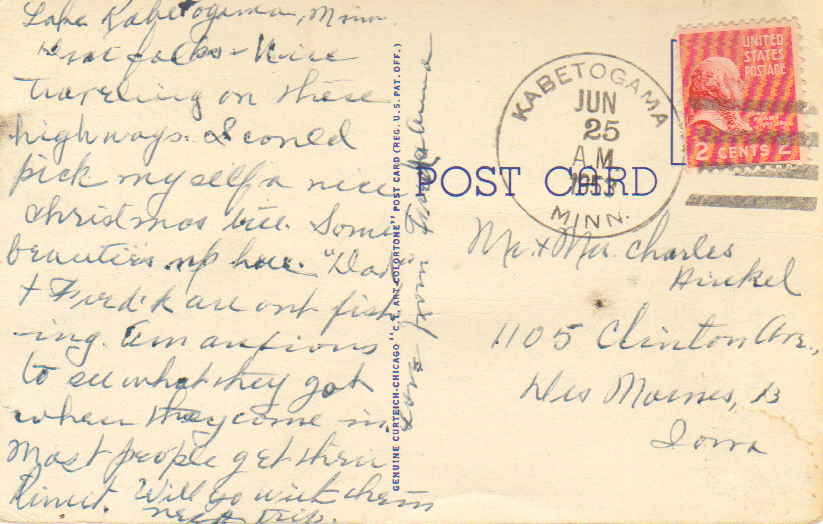 Lake Kabetogama, Minn.
folks - Nice
traveling on these
highways. I could
pick myself a nice
Christmas tree. Some
beauties up here. "Dad"
+ Fred'k are out fish
ing. Am anxious
to see what they got
when they come in.
Most people get their
limit. Will go with them
next trip.
Love from
GENUINE CURTEICH-CHICAGO "C.T. ART-COLORTONE" POST CARD (REG. U.S. PAT. OFF.)
POST CARD
KABETOGAMA
JUN
25
A M
1953
MINN.
UNITED
STATES
POSTAGE
2 CENTS 2
Mr. + Mrs. Charles
Hinkel
1105 Clinton Ave.,
Des Moines, 13
Iowa